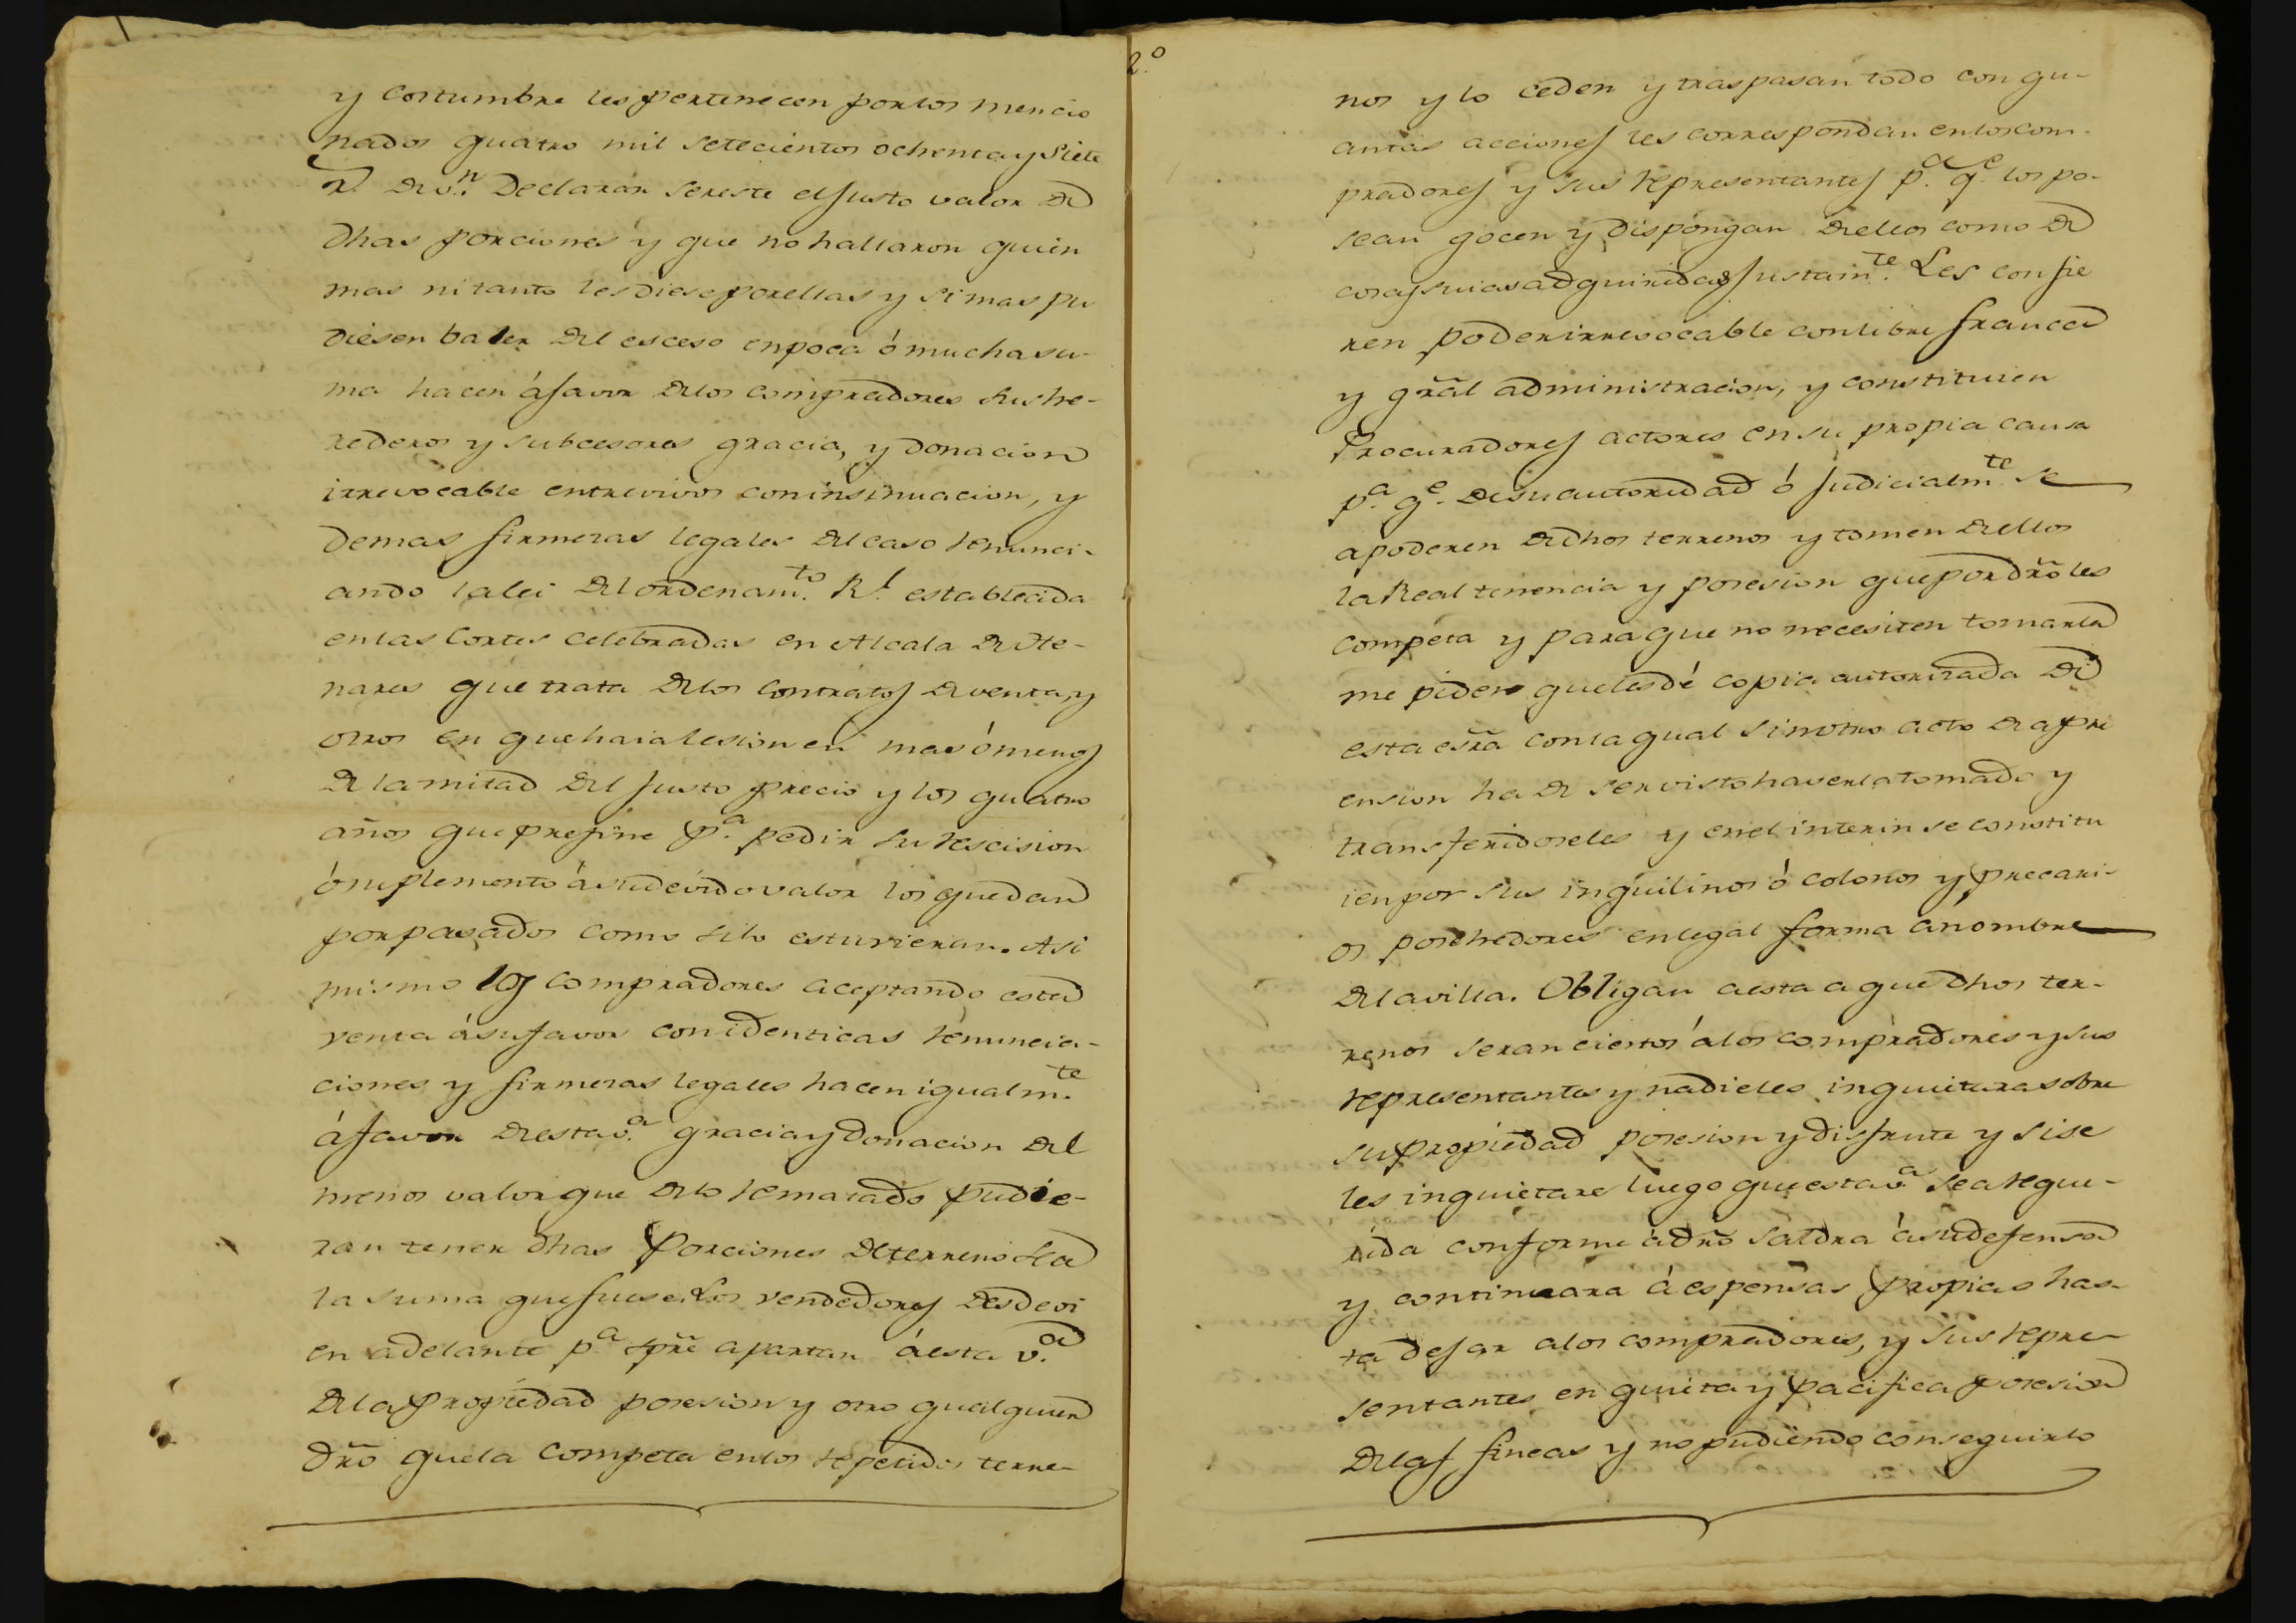 y costumbre les pertenecen por los mencio
nados quatro mil setecientos ochenta y siete
r.ˢ de v.ⁿ Declaran ser este el justo valor de
dhas porciones y que no hallaron quien
mas ni tanto les diese por ellas y si mas pu
diesen baler del esceso en poca ó mucha su-
ma hacen á favor de los compradores sus he-
rederos y subcesores gracia, y donacion
irrevocable entre vivos con insinuacion, y
demas firmezas legales del caso renunci-
ando la lei del ordenam.ᵗᵒ R.ˡ establecida
en las Cortes celebradas en Alcala de He-
nares que trata de los contratos de venta, y
otros en que haia lesion en mas ó menos
de la mitad del justo precio y los quatro
años que prefine p.ᵃ pedir su rescision
ó suplemento á su devido valor los que dan
por pasados como si lo estuvieran. Asi
mismo los compradores aceptando esta
venta á su favor con identicas renuncia-
ciones y firmezas legales hacen igualm.ᵗᵉ
á favor de esta v.ᵃ gracia y donacion del
menos valor que de lo rematado pudie-
ran tener dhas Porciones de terreno sea
la suma que fuese. Los vendedores desde oi
en adelante p.ᵃ spre apartan á esta v.ᵃ
de la propiedad posesion y otro qualquier
dro que la competa en los repetidos terre-
2.º
nos y lo ceden y traspasan todo con qu-
antas acciones les correspondan en los com-
pradores y sus representantes p.ᵃ q.ᵉ los po-
sean gocen y dispongan de ellos como de
cosas suias adquiridas justam.ᵗᵉ Les confie
ren poder irrevocable con libre franca
y gral administracion, y constituien
Procuradores actores en su propia causa
p.ᵃ q.ᵉ de su autoridad ó judicialm.ᵗᵉ se
apoderen de dhos terrenos y tomen de ellos
la Real tenencia y posesion que por dro les
competa y para que no necesiten tomarla
me piden que les dé copia autorizada de
esta esra con la qual sin otro acto de apre
ension ha de ser visto haverla tomado y
transferidoseles y en el interin se constitu
ien por sus inquilinos ó colonos y precari-
os posehedores en legal forma a nombre
de la villa. Obligan a esta a que dhos ter-
renos seran ciertos á los compradores y sus
representantes y nadie les inquietara sobre
su propiedad posesion y disfrute y si se
les inquietare luego que esta v.ᵃ sea reque-
rida conforme á dro saldra á su defensa
y continuara á espensas propias has-
ta dejar a los compradores, y sus repre-
sentantes en quieta y pacifica posesion
de las fincas y no pudiendo conseguirlo